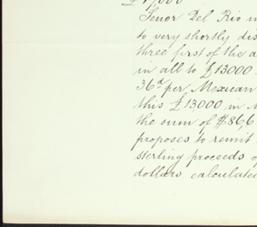 £17,000
Senor Del Rio in
to very shortly dis
three first of the a
in all to £13000
36d per Mexican
this £13,000 in M
the sum of $86,6
proposes to remit
sterling proceeds o
dollars calculated